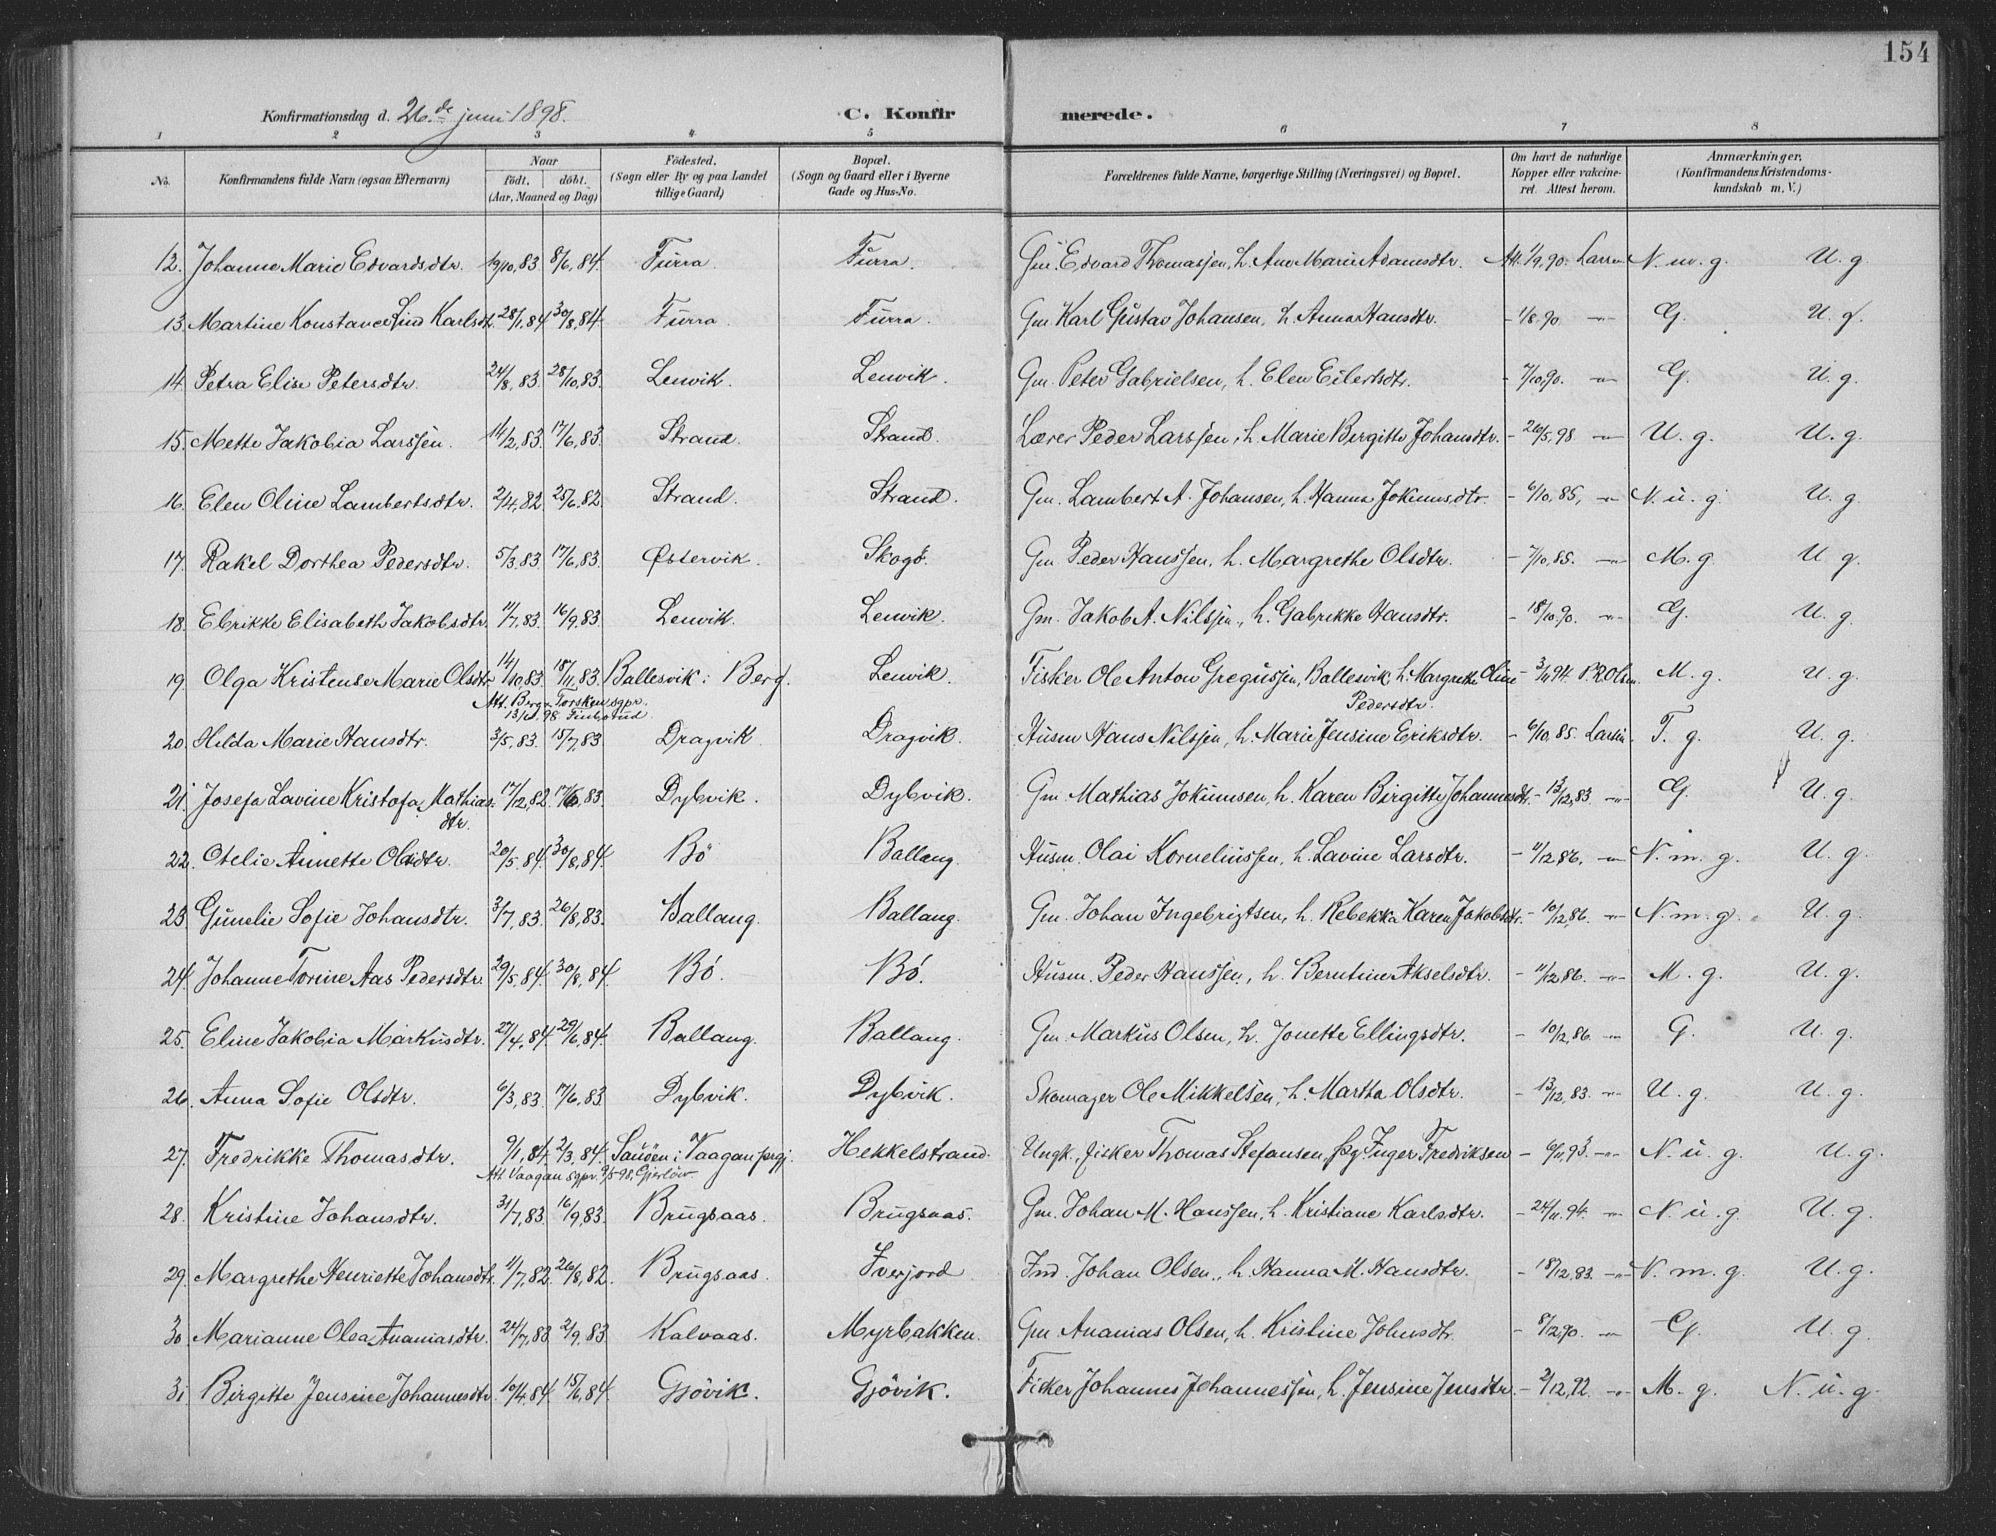 154
Konfirmationsdag d. 26.de juni 1898. C. Konfir merede.
1 2 3 4 5 6 7 8
No. Konfirmandens fulde Navn (ogsaa Efternavn) Naar født, døbt. (Aar, Maaned og Dag) Fødested. (Sogn eller By og paa Landet tillige Gaard) Bopæl. (Sogn og Gaard eller i Byerne Gade og Hus-No. Forældrenes fulde Navne, borgerlige Stilling (Næringsvei) og Bopæl. Om havt de naturlige Kopper eller vakcineret. Attest herom. Anmærkninger, (Konfirmandens Kristendomskundskab m. V.)
12. Johanne Marie Edvardsdtr. 19/10,83 8/6,84. Furra. Furra. Gm. Edvard Thomassen, h. Ane Marie Adamsdtr. Att. 1/9,90. N. m. g. U. g.
13. Martine Konstance Lind Karlsdt. 28/1,84 30/8,84 Furra. Furra. Gm. Karl Gustav Johansen, h. Anna Hansdtr. - 1/8.90. -"- G. U. g.
14. Petra Elise Petersdtr. 24/8,83. 28/10,83. Lenvik. Lenvik. Gm. Peter Gabrielsen, h. Elen Eilertsdtr. - 7/10,90. -"- G. U. g.
15. Mette Jakobia Larssen. 14/2,83. 17/6,83. Strand. Strand. Lærer Peder Larssen, h. Marie Birgitte Johansdtr. - 26/5,98 -"- U. g. U. g.
16. Elen Oline Lambertsdtr. 2/4,82. 25/6,82. Strand. Strand. Gm. Lambert A. Johansen, h. Hanna Jokumsdtr. - 6/10,85, -"- N. u. g. U. g.
17. Rakel Dorthea Pedersdtr. 5/3,83. 17/6,83. Østervik. Skogö. Gm Peder Hanssen, h. Margrethe Olsdtr. - 7/10,85. -"- M. g. U. g.
18. Elrikke Elisabeth Jakobsdtr. 11/7,83. 16/9,83. Lenvik. Lenvik. Gm. Jakob A. Nilssen, h. Gabrikke Hansdtr. - 18/10.90. -"- G. U. g.
19. Olga Kristense Marie Olsdtr 14/10,83. 18/11,83. Ballesvik i Berg. Lenvik. Fisker Ole Anton Gregussen, Ballesvik, h. Margrethe Oline - 3/11 94. M. g. U. g.
Att. Berg & Torsken sgpr. Pedersdtr.
98.
20. Hilda Marie Hansdtr. 3/5,83. 15/7,83. Dragvik. Dragvik. Husm Hans Nilssen, h. Marie Jensine Eriksdtr. - 6/10,85. T. g. U. g.
21. Josefa Lavine Kristofa Mathias- 17/12,82. 17/6,83. Dybvik. Dybvik. Gm. Mathias Jokumsen, h. Karen Birgitte Johannesdtr. - 13/12,83. -"- G. U. g.
dtr.
22. Otelie Annette Olsdtr. 20/5,84. 30/8,84. Bö Ballang. Husm. Olai Korneliussen, h. Lavine Larsdtr. - 11/12 86. -"- N. m. g. U. g.
23. Gunelie Sofie Johansdtr. 3/7,83. 26/8,83. Ballang. Ballang. Gm. Johan Ingebrigtsen, h. Rebekka Karen Jakobsdtr. - 10/12,86. -"- N. m. g. U. g.
24. Johanne Torine Aas Pedersdtr. 29/5,84. 30/8,84. Bö. Bö. Husm. Peder Hanssen, h. Berntine Akselsdtr. - 11/12,86. -"- M. g. U. g.
25. Eline Jakobia Markusdtr. 27/4,84. 29/6,84. Ballang. Ballang. Gm. Markus Olsen, h. Jonette Ellingsdtr. - 10/12,86. -"- G. U. g.
26. Anna Sofie Olsdtr. 6/3,83. 17/6,83 Dybvik. Dybvik. Skomager Ole Mikkelsen, h. Martha Olsdtr. - 13/12,83. -"- U. g. U. g.
27. Fredrikke Thomasdtr. 9/1,84. 2/3,84. i Vaagan prgj. Hekkelstrand. Ungk., fisker Thomas Stefansen, Pg. Inger Fredriksen - 6/11,93. -"- N. u. g. U. g.
Att. Vaagan sgpr. 9/5 98. Gjerlöv.
28. Kristine Johansdtr. 31/7,83. 16/9,83. Brugsaas. Brugsaas. Gm. Johan M. Hanssen, h. Kristiane Karlsdtr. - 24/11,94. -"- N. u. g. U. g.
29. Margrethe Henriette Johansdtr. 11/7,82. 26/8,82. Brugsaas. Iverjord Ind. Johan Olsen, h. Hanna M. Hansdtr. - 18/12.83. -"- N. m. g. U. g.
30. Marianne Olea Ananiasdtr. 24/7,83 2/9,83. Kalvaas. Myrbakken. Gm Ananias Olsen, h. Kristine Johnsdtr. - 8/2,90. -"- G. U. g.
31. Birgitte Jensine Johannesdtr. 10/4,84. 15/6,84. Gjövik. Gjövik. Fisker Johannes Johannessen, h. Jensine Jensdtr. - 2/12,92. -"- M. g. N. u. g.